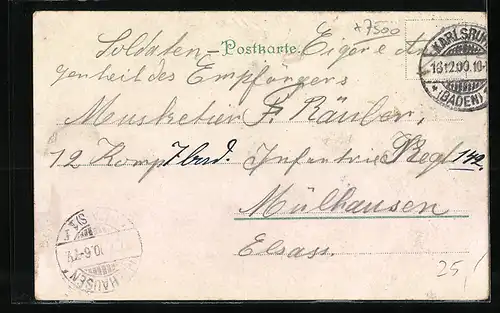 +7500
Soldaten- Postkarte. Eigene An
genheit des Empfängers
KARLSRUHE
16.12.00.10-
* (BADEN) *
Musketier F. Räuber,
12 Komp 7 bad. Infantrie Regt 142.
Mülhausen
Elsass.
HAUSEN
25